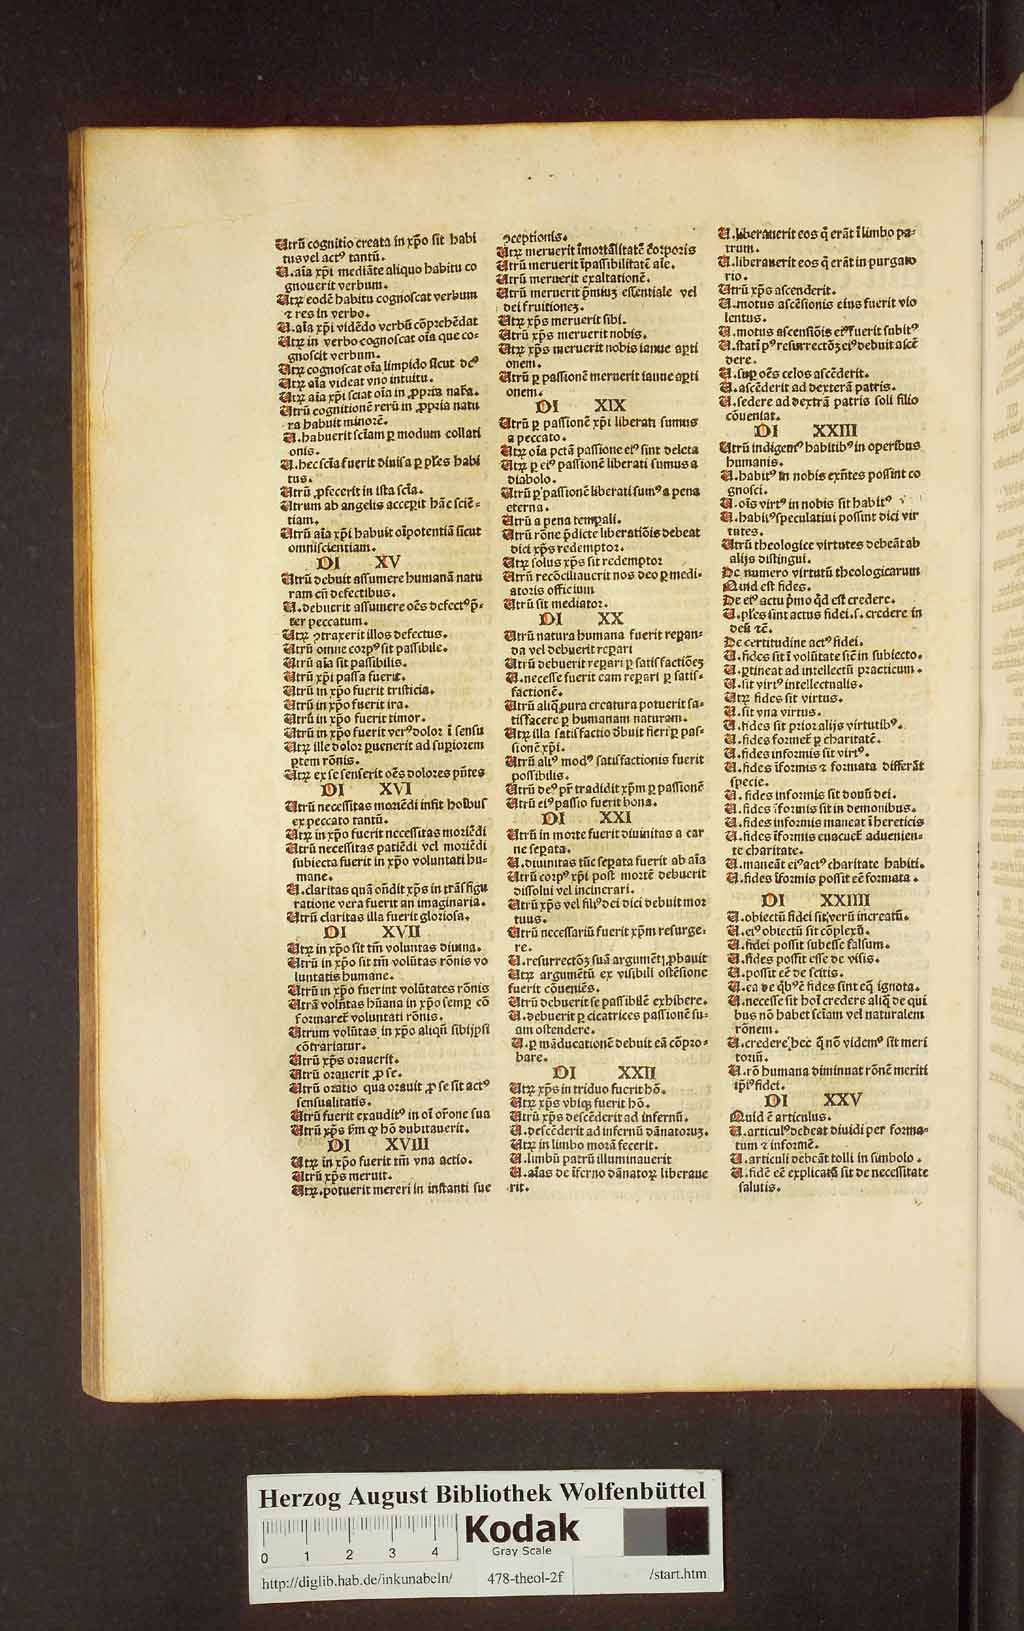 Utrū cognitio creata in xp̄o sit habi
tus vel actꝰ tantū.
U. aīa xp̄i mediāte aliquo habitu co
gnouerit verbum.
Utꝝ eodē habitu cognoscat verbum
⁊ res in verbo.
U. aīa xp̄i vidēdo verbū cōp̄rehēdat
Utꝝ in verbo cognoscat oīa que co⸗
gnoscit verbum.
Utꝝ cognoscat oīa limpido sicut deꝰ
Utꝝ oīa videat vno intuitu.
Utꝝ aīa xp̄i sciat oīa in ꝓpria nat̄a.
Utrū cognitionē rerū in ꝓpria natu
ra habuit minorē.
U. habuerit sciāam ꝑ modum collati
onis.
U. hec scīa fuerit diuisa ꝑ pl̄es habi
tus.
Utrū ꝓfecerit in ista scīa.
Utrum ab angelis acceꝑit hāc sciē⸗
tiam.
Utrū aīa xp̄i habuit oīpotentiā sicut
omniscientiam.
DI XV
Utrū debuit assumere humanā natu
ram cū defectibus.
U. debuerit assumere oēs defectꝰ p̄⸗
ter peccatum.
Utꝝ ꝯtraxerit illos defectus.
Utrū omne corpꝰ sit passibile.
Utrū aīa sit passibilis.
Utrū xp̄i passa fuerit.
Utrū in xp̄o fuerit tristicia.
Utrū in xp̄o fuerit ira.
Utrū in xp̄o fuerit timor.
Utrū in xp̄o fuerit verꝰ dolor ī sensu
Utꝝ ille dolor ꝑuenerit ad suꝑiorem
ꝑtem rōnis.
Utꝝ ex se senserit oēs dolores pn̄tes
DI XVI
Utrū necessitas moriēdi infit hoībus
ex peccato tantū.
Utꝝ in xp̄o fuerit necessitas moriēdi
Utrū necessitas patiēdi vel moriēdi
subiecta fuerit in xp̄o voluntati hu⸗
mane.
U. claritas quā on̄dit xp̄s in trāsfigu
ratione vera fuerit an imaginaria.
Utrū claritas illa fuerit gloriosa.
DI XVII
Utꝝ in xp̄o sit tm̄ voluntas diuina.
Utrū in xp̄o sit tm̄ volūtas rōnis vo
luntatis humane.
Utrū in xp̄o fuerint volūtates rōnis
Utrū voln̄tas hūana in xp̄o semꝑ cō
formaret̄ voluntati rōnis.
Utrum volūtas in xp̄o aliqn̄ sibijpsi
cōtrariatur.
Utrū xp̄s orauerit.
Utrū orauerit ꝓ se.
Utrū oratio qua orauit ꝓ se sit actꝰ
sensualitatis.
Utrū fuerit exauditꝰ in oī or̄one sua
Utrū xp̄s fm̄ ꝙ hō dubitauerit.
DI XVIII
Utꝝ in xp̄o fuerit tm̄ vna actio.
Utrū xp̄s meruit.
Utꝝ potuerit mereri in instanti sue
ꝯceptionis.
Utꝝ meruerit īmortalitatē corporis
Utrū meruerit īpassibilitatē aīe.
Utrū meruerit exaltationē.
Utrū meruerit p̄miuꝫ essentiale vel
dei fruitioneꝫ.
Utꝝ xp̄s meruerit sibi.
Utrū xp̄s meruerit nobis.
Utꝝ xp̄s meruerit nobis ianue aꝑti
onem.
Utrū ꝑ passionē meruerit ianue aꝑti
onem.
DI XIX
Utrū ꝑ passionē xp̄i liberati sumus
a peccato.
Utꝝ oīa pctā passione eiꝰ sint deleta
Utꝝ ꝑ eiꝰ passionē liberati sumus a
diabolo.
Utrū ꝑ passionē liberati sumꝰ a pena
eterna.
Utrū a pena temꝑali.
Utrū rōne p̄dicte liberatiōis debeat
dici xp̄s redemptor.
Utꝝ solus xp̄s sit redemptor
Utrū recōciliauerit nos deo ꝑ medi⸗
atoris officium
Utrū sit mediator.
DI XX
Utrū natura humana fuerit reꝑan⸗
da vel debuerit reꝑari
Utrū debuerit reꝑari ꝑ satisfactiōeꝫ
U. necesse fuerit eam reꝑari ꝑ satis⸗
factionē.
Utrū aliq̄ pura creatura potuerit sa⸗
tisfacere ꝑ humanam naturam.
Utꝝ illa satisfactio d̄buit fieri ꝑ pas⸗
sionē xp̄i.
Utrū aliꝰ modꝰ satisfactionis fuerit
possibilis.
Utrū deꝰ pr̄ tradidit xp̄m ꝑ passionē
Utrū eiꝰ passio fuerit bona.
DI XXI
Utrū in morte fuerit diuinitas a car
ne seꝑata.
U. diuinitas tūc seꝑata fuerit ab aīa
Utrū corpꝰ xp̄i post mortē debuerit
dissolui vel incinerari.
Utrū xp̄s vel filiꝰ dei dici debuit mor
tuus.
Utrū necessariū fuerit xp̄m resurge⸗
re.
U. resurrectōꝫ suā argumētꝫ ꝓbauit
Utꝝ argumētū ex visibili ostēsione
fuerit cōueniēs.
Utrū debuerit se passibilē exhibere.
U. debuerit ꝑ cicatrices passionē su⸗
am ostendere.
U. ꝑ māducationē debuit eā cōpro⸗
bare.
DI XXII
Utꝝ xp̄s in triduo fuerit hō.
Utꝝ xp̄s vbiqꝫ fuerit hō.
Utrū xp̄s descēderit ad infernū.
U. descēderit ad infernū dānatoruꝫ.
Utꝝ in limbo morā fecerit.
U. limbū patrū illuminauerit
U. aīas de īferno dānatoꝝ liberaue
rit.
U. liberauerit eos q̄ erāt ī limbo pa⸗
trum.
U. liberauerit eos q̄ erāt in purgato
rio.
Utrū xp̄s ascenderit.
U. motus ascēsionis eius fuerit vio
lentus.
U. motus ascensiōis eiꝰ fuerit subitꝰ
U. statī pꝰ resurrectōꝫ eiꝰ debuit ascē
dere.
U. suꝑ oēs celos ascēderit.
U. ascēderit ad dexterā patris.
U. sedere ad dextrā patris soli filio
cōueniat.
DI XXIII
Utrū indigemꝰ habitibꝰ in operibus
humanis.
U. habitꝰ in nobis exn̄tes possint co
gnosci.
U. oīs virtꝰ in nobis sit habitꝰ
U. habitꝰ speculatiui possint dici vir
tutes.
Utrū theologice virtutes debeāt ab
alijs distingui.
De numero virtutū theologicarum
Quid est fides.
De eiꝰ actu p̄mo qd̄ est credere.
U. pl̄es sint actus fidei. s. credere in
deū ⁊c̄.
De certitudine actꝰ fidei.
U. fides sit ī volūtate sic̄ in subiecto.
U. ꝑtineat ad intellectū practicum.
U. sit virtꝰ intellectualis.
Utꝝ fides sit virtus.
U. sit vna virtus.
U. fides sit prior alijs virtutibꝰ.
U. fides formet̄ ꝑ charitatē.
U. fides informis sit virtꝰ.
U. fides īformis ⁊ formata differāt
specie.
U. fides informis sit donū dei.
U. fides īformis sit in demonibus.
U. fides informis maneat ī hereticis
U. fides īformis euacuet̄ aduenien⸗
te charitate.
U. maneāt eiꝰ actꝰ charitate habiti.
U. fides īformis possit eē formata.
DI XXIIII
U. obiectū fidei sit verū increatū.
U. eiꝰ obiectū sit cōplexū.
U. fidei possit subesse falsum.
U. fides possit esse de visis.
U. possit eē de scitis.
U. ea de qbꝰ ē fides sint eq̄ ignota.
U. necesse sit hoī credere aliq̄ de qui
bus nō habet scīam vel naturalem
rōnem.
U. credere hec q̄ nō videmꝰ sit meri
toriū.
U. rō humana diminuat rōnē meriti
ipīꝰ fidei.
DI XXV
Quid ē articulus.
U. articulꝰ debeat diuidi per forma⸗
tum ⁊ informē.
U. articuli debeāt tolli in simbolo.
U. fidē eē explicatā sit de necessitate
salutis.
Herzog August Bibliothek Wolfenbüttel
Kodak
Gray Scale
0 1 2 3 4
http://diglib.hab.de/inkunabeln/ 478-theol-2f /start.htm